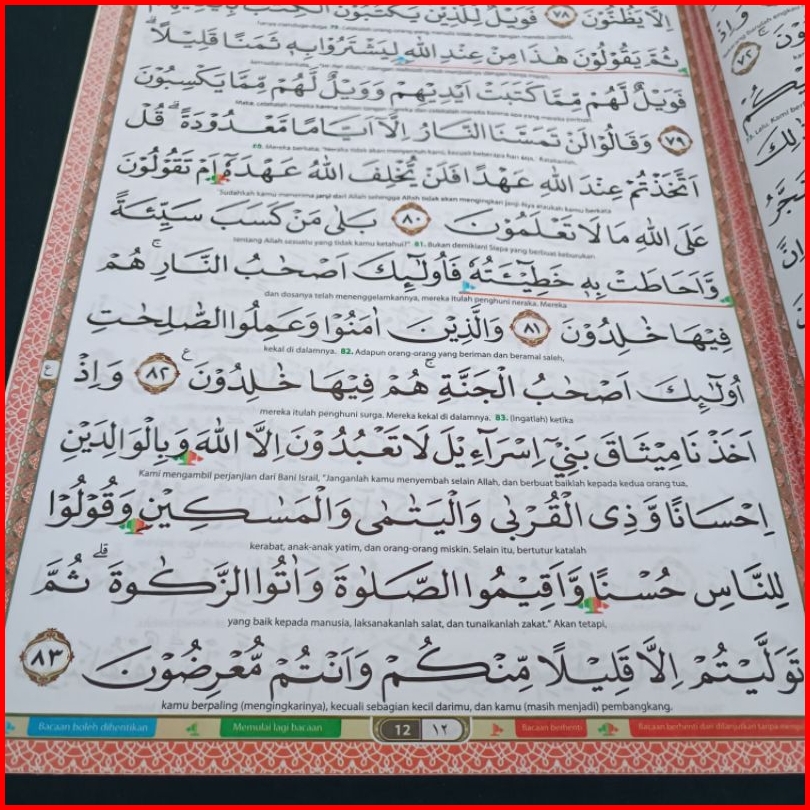 اِلَّا يَظُنُّوْنَ ٧٨ فَوَيْلٌ لِّلَّذِيْنَ يَكْتُبُوْنَ الْكِتٰبَ بِاَيْدِيْهِمْ
ثُمَّ يَقُوْلُوْنَ هٰذَا مِنْ عِنْدِ اللّٰهِ لِيَشْتَرُوْا بِهٖ ثَمَنًا قَلِيْلًاۗ
فَوَيْلٌ لَّهُمْ مِّمَّا كَتَبَتْ اَيْدِيْهِمْ وَوَيْلٌ لَّهُمْ مِّمَّا يَكْسِبُوْنَ
٧٩ وَقَالُوْا لَنْ تَمَسَّنَا النَّارُ اِلَّآ اَيَّامًا مَّعْدُوْدَةًۗ قُلْ
80. Mereka berkata, "Neraka tidak akan menyentuh kami, kecuali beberapa hari saja." Katakanlah,
اَتَّخَذْتُمْ عِنْدَ اللّٰهِ عَهْدًا فَلَنْ يُّخْلِفَ اللّٰهُ عَهْدَهٗٓ اَمْ تَقُوْلُوْنَ
"Sudahkah kamu menerima janji dari Allah sehingga Allah tidak akan mengingkari janji-Nya ataukah kamu berkata
عَلَى اللّٰهِ مَا لَا تَعْلَمُوْنَ ٨٠ بَلٰى مَنْ كَسَبَ سَيِّئَةً
tentang Allah sesuatu yang tidak kamu ketahui?" 81. Bukan demikian! Siapa yang berbuat keburukan
وَّاَحَاطَتْ بِهٖ خَطِيْۤـَٔتُهٗ فَاُولٰۤىِٕكَ اَصْحٰبُ النَّارِۚ هُمْ
dan dosanya telah menenggelamkannya, mereka itulah penghuni neraka. Mereka
فِيْهَا خٰلِدُوْنَ ٨١ وَالَّذِيْنَ اٰمَنُوْا وَعَمِلُوا الصّٰلِحٰتِ
kekal di dalamnya. 82. Adapun orang-orang yang beriman dan beramal saleh,
اُولٰۤىِٕكَ اَصْحٰبُ الْجَنَّةِۚ هُمْ فِيْهَا خٰلِدُوْنَ ࣖ ٨٢ وَاِذْ
mereka itulah penghuni surga. Mereka kekal di dalamnya. 83. (Ingatlah) ketika
اَخَذْنَا مِيْثَاقَ بَنِيْٓ اِسْرَاۤءِيْلَ لَا تَعْبُدُوْنَ اِلَّا اللّٰهَ وَبِالْوَالِدَيْنِ
Kami mengambil perjanjian dari Bani Israil, "Janganlah kamu menyembah selain Allah, dan berbuat baiklah kepada kedua orang tua,
اِحْسَانًا وَّذِى الْقُرْبٰى وَالْيَتٰمٰى وَالْمَسٰكِيْنِ وَقُوْلُوْا
kerabat, anak-anak yatim, dan orang-orang miskin. Selain itu, bertutur katalah
لِلنَّاسِ حُسْنًا وَّاَقِيْمُوا الصَّلٰوةَ وَاٰتُوا الزَّكٰوةَۗ ثُمَّ
yang baik kepada manusia, laksanakanlah salat, dan tunaikanlah zakat." Akan tetapi,
تَوَلَّيْتُمْ اِلَّا قَلِيْلًا مِّنْكُمْ وَاَنْتُمْ مُّعْرِضُوْنَ ٨٣
kamu berpaling (mengingkarinya), kecuali sebagian kecil darimu, dan kamu (masih menjadi) pembangkang.
Bacaan boleh dihentikan Memulai lagi bacaan 12 ١٢ Bacaan berhenti Bacaan berhenti dan dilanjutkan tanpa